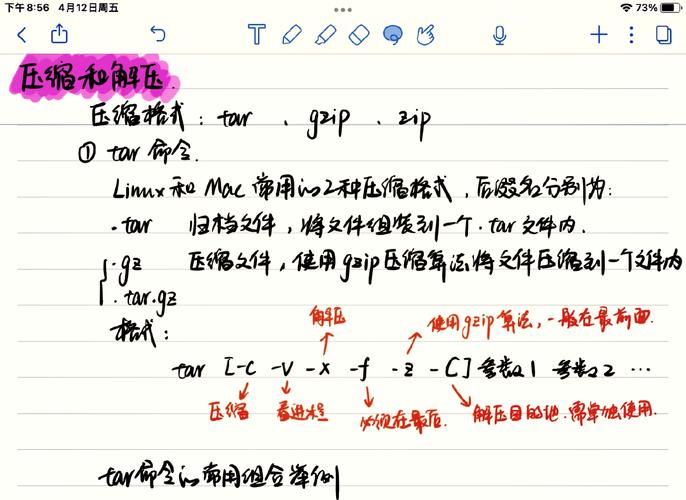 下午8:56 4月12日周五
73%
压缩和解压.
压缩格式：tar 、gzip 、zip
① tar 命令.
Linux和Mac常用的2种压缩格式，后缀名分别为：
.tar 归档文件，将文件组装到一个.tar文件内.
.gz 压缩文件，使用gzip压缩算法将文件压缩到一个文件内
.tar.gz
格式：
解压
使用gzip算法，一般在最前面.
tar [-c -v -x -f -z -C] 参数1 参数2 …
压缩
看进程
必须在最后.
解压目的地.需单独使用.
tar命令的常用组合举例